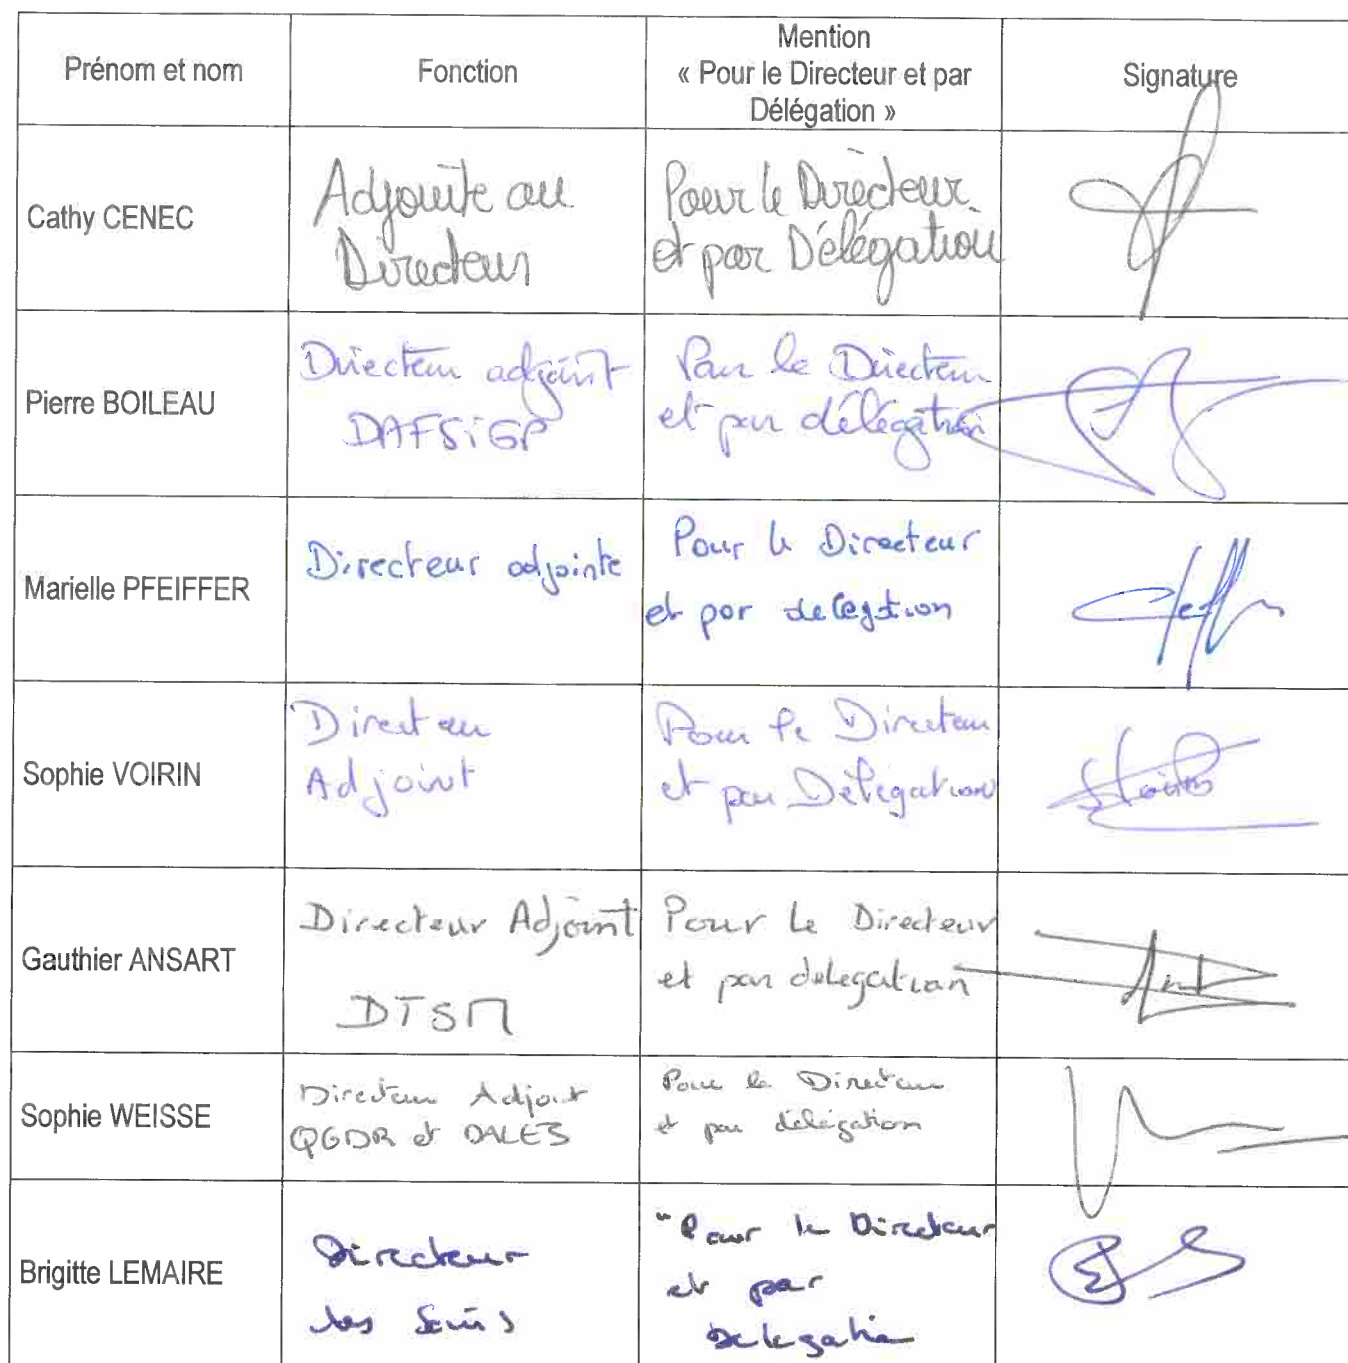 Prénom et nom
Fonction
Mention
« Pour le Directeur et par
Délégation »
Signature
Cathy CENEC
Adjointe au
Directeur
Pour le Directeur
et par Délégation
Pierre BOILEAU
Directeur adjoint
DAFSiGP
Pour le Directeur
et par délégation
Marielle PFEIFFER
Directeur adjointe
Pour le Directeur
et par delegation
Sophie VOIRIN
Directeur
Adjoint
Pour le Directeur
et par Délégation
Gauthier ANSART
Directeur Adjoint
DTSM
Pour le Directeur
et par delegation
Sophie WEISSE
Directeur Adjoint
QGDR et DALES
Pour le Directeur
et par délégation
Brigitte LEMAIRE
Directeur
des Soins
"Pour le Directeur
et par
Delegation